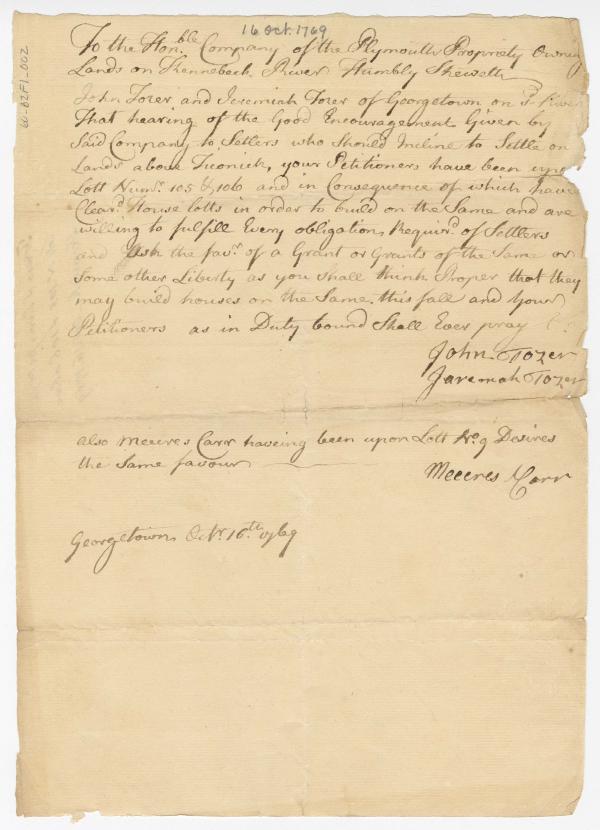 16 Oct. 1769
To the Hon.ble Company of the Plymouth Propriety Owning
Lands on Kennebeck River Humbly Sheweth
John Tozer and Jeremiah Tozer of Georgetown on sd. River
That hearing of the Good Encouragement Given by
Said Company to Settlers who Should Incline to Settle on
Lands above Ticonick, your Petitioners have been upo
Lott Numr. 105 & 106 and in Consequence of which have
Clear.d House lotts in order to build on the Same and are
willing to fulfill Every obligation Requir.d of Settlers
and Ask the favr. of a Grant or Grants of the Same or
Some other Liberty as you Shall think Proper that they
may build houses on the Same this fall and your
Petitioners as in Duty bound Shall Ever pray
John Tozer
Jaremiah Tozer
also Meeres Carr haveing been upon Lott No. 9 Desires
the Same favour
Meeres Carr
Georgetown Octr. 16.th 1769